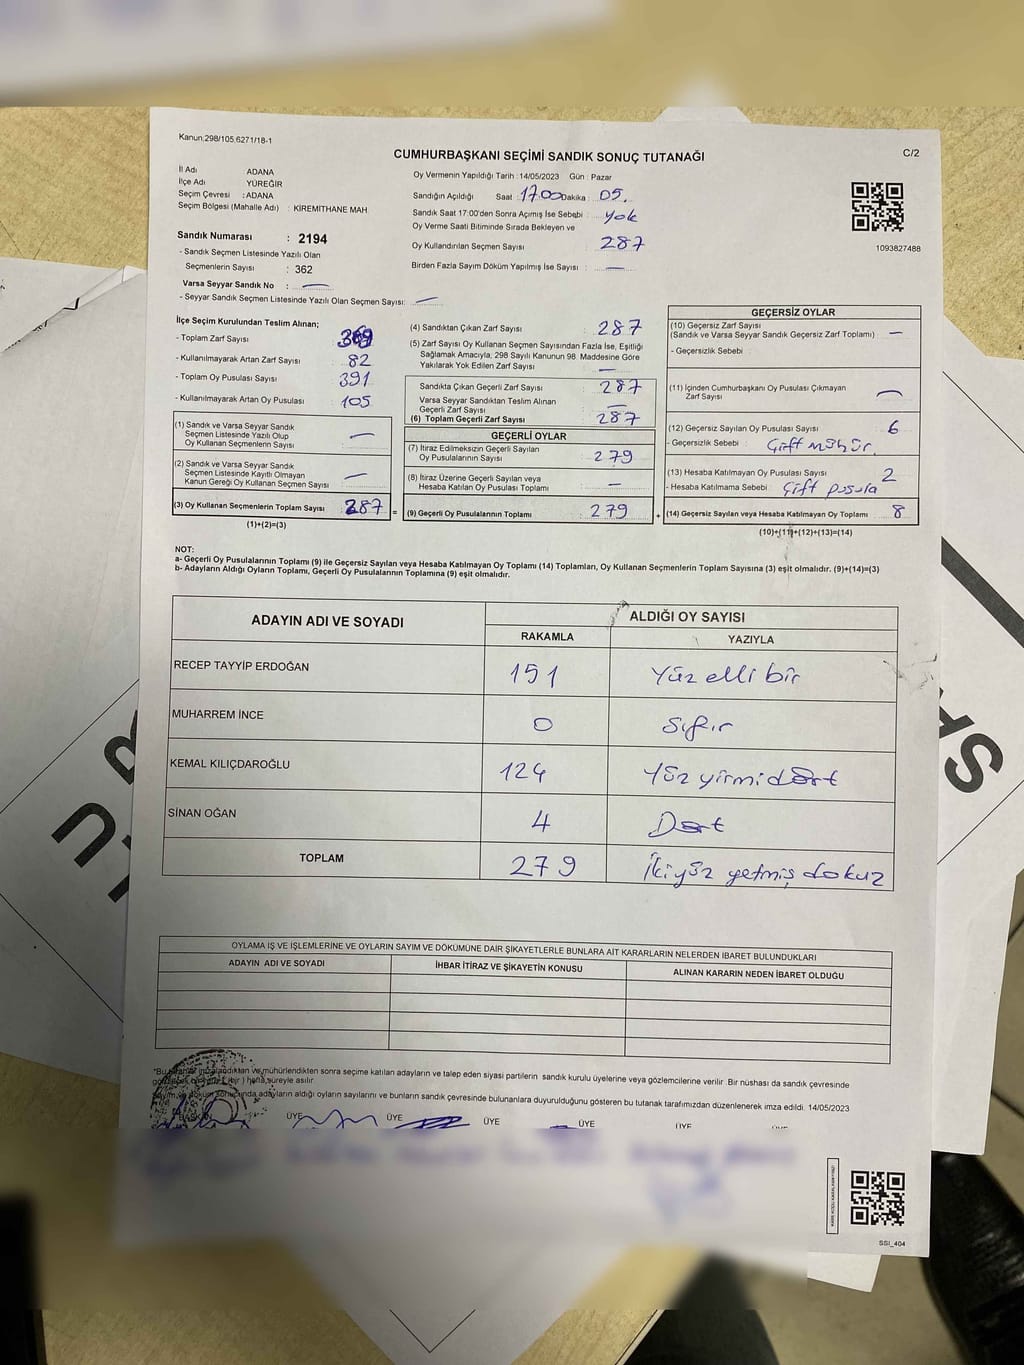 Kanun:298/105,6271/18-1
C/2
CUMHURBAŞKANI SEÇİMİ SANDIK SONUÇ TUTANAĞI
İl Adı ADANA
İlçe Adı YÜREĞİR
Seçim Çevresi : ADANA
Seçim Bölgesi (Mahalle Adı) : KİREMİTHANE MAH
Sandık Numarası : 2194
- Sandık Seçmen Listesinde Yazılı Olan
Seçmenlerin Sayısı : 362
Varsa Seyyar Sandık No : —
- Seyyar Sandık Seçmen Listesinde Yazılı Olan Seçmen Sayısı: —
Oy Vermenin Yapıldığı Tarih :14/05/2023 Gün : Pazar
Sandığın Açıldığı Saat : 17.00 Dakika : 05.
Sandık Saat 17:00'den Sonra Açımış İse Sebebi : yok
Oy Verme Saati Bitiminde Sırada Bekleyen ve
Oy Kullandırılan Seçmen Sayısı : 287
Birden Fazla Sayım Döküm Yapılmış İse Sayısı : —
1093827488
İlçe Seçim Kurulundan Teslim Alınan;
- Toplam Zarf Sayısı : 369
- Kullanılmayarak Artan Zarf Sayısı : 82
- Toplam Oy Pusulası Sayısı : 391
- Kullanılmayarak Artan Oy Pusulası : 105
(1) Sandık ve Varsa Seyyar Sandık
Seçmen Listesinde Yazılı Olup
Oy Kullanan Seçmenlerin Sayısı : —
(2) Sandık ve Varsa Seyyar Sandık
Seçmen Listesinde Kayıtlı Olmayan
Kanun Gereği Oy Kullanan Seçmen Sayısı : —
(3) Oy Kullanan Seçmenlerin Toplam Sayısı : 287
(1)+(2)=(3)
(4) Sandıktan Çıkan Zarf Sayısı : 287
(5) Zarf Sayısı Oy Kullanan Seçmen Sayısından Fazla İse, Eşitliği
Sağlamak Amacıyla, 298 Sayılı Kanunun 98. Maddesine Göre
Yakılarak Yok Edilen Zarf Sayısı : —
Sandıkta Çıkan Geçerli Zarf Sayısı : 287
Varsa Seyyar Sandıktan Teslim Alınan
Geçerli Zarf Sayısı : —
(6) Toplam Geçerli Zarf Sayısı : 287
GEÇERLİ OYLAR
(7) İtiraz Edilmeksizin Geçerli Sayılan
Oy Pusulalarının Sayısı : 279
(8) İtiraz Üzerine Geçerli Sayılan veya
Hesaba Katılan Oy Pusulası Toplamı : —
(9) Geçerli Oy Pusulalarının Toplamı : 279
GEÇERSİZ OYLAR
(10) Geçersiz Zarf Sayısı
(Sandık ve Varsa Seyyar Sandık Geçersiz Zarf Toplamı) : —
- Geçersizlik Sebebi :
(11) İçinden Cumhurbaşkanı Oy Pusulası Çıkmayan
Zarf Sayısı : —
(12) Geçersiz Sayılan Oy Pusulası Sayısı : 6
- Geçersizlik Sebebi : Çift mühür.
(13) Hesaba Katılmayan Oy Pusulası Sayısı : 2
- Hesaba Katılmama Sebebi : Çift pusula
(14) Geçersiz Sayılan veya Hesaba Katılmayan Oy Toplamı : 8
(10)+(11)+(12)+(13)=(14)
NOT:
a- Geçerli Oy Pusulalarının Toplamı (9) ile Geçersiz Sayılan veya Hesaba Katılmayan Oy Toplamı (14) Toplamları, Oy Kullanan Seçmenlerin Toplam Sayısına (3) eşit olmalıdır. (9)+(14)=(3)
b- Adayların Aldığı Oyların Toplamı, Geçerli Oy Pusulalarının Toplamına (9) eşit olmalıdır.
ADAYIN ADI VE SOYADI ALDIĞI OY SAYISI
RAKAMLA YAZIYLA
RECEP TAYYİP ERDOĞAN 151 Yüz elli bir
MUHARREM İNCE 0 Sıfır
KEMAL KILIÇDAROĞLU 124 Yüz yirmi dört
SİNAN OĞAN 4 Dört
TOPLAM 279 İki yüz yetmiş dokuz
OYLAMA İŞ VE İŞLEMLERİNE VE OYLARIN SAYIM VE DÖKÜMÜNE DAİR ŞİKAYETLERLE BUNLARA AİT KARARLARIN NELERDEN İBARET BULUNDUKLARI
ADAYIN ADI VE SOYADI İHBAR İTİRAZ VE ŞİKAYETİN KONUSU ALINAN KARARIN NEDEN İBARET OLDUĞU
*Bu imzalandıktan ve mühürlendikten sonra seçime katılan adayların ve talep eden siyasi partilerin sandık kurulu üyelerine veya gözlemcilerine verilir. Bir nüshası da sandık çevresinde
süreyle asılır.
adayların aldığı oyların sayılarını ve bunların sandık çevresinde bulunanlara duyurulduğunu gösteren bu tutanak tarafımızdan düzenlenerek imza edildi. 14/05/2023
BAŞKAN ÜYE ÜYE ÜYE ÜYE ÜYE
SSI_404